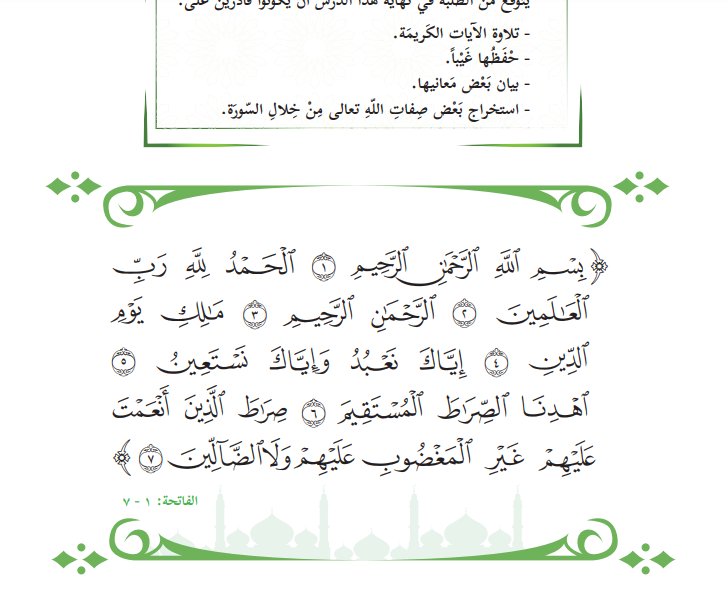 يتوقع من الطلبة في نهاية هذا الدرس أن يكونوا قادرين على:
- تلاوة الآيات الكَريمَة.
- حْفَظُها غَيْباً.
- بيان بَعْض مَعانيها.
- استخراج بَعْض صِفاتِ اللّهِ تعالى مِنْ خِلالِ السّورَة.
﴿بِسْمِ ٱللَّهِ ٱلرَّحْمَٰنِ ٱلرَّحِيمِ ١ ٱلْحَمْدُ لِلَّهِ رَبِّ
ٱلْعَٰلَمِينَ ٢ ٱلرَّحْمَٰنِ ٱلرَّحِيمِ ٣ مَٰلِكِ يَوْمِ
ٱلدِّينِ ٤ إِيَّاكَ نَعْبُدُ وَإِيَّاكَ نَسْتَعِينُ ٥
ٱهْدِنَا ٱلصِّرَاطَ ٱلْمُسْتَقِيمَ ٦ صِرَاطَ ٱلَّذِينَ أَنْعَمْتَ
عَلَيْهِمْ غَيْرِ ٱلْمَغْضُوبِ عَلَيْهِمْ وَلَا ٱلضَّآلِّينَ ٧﴾
الفاتحة: ١ - ٧